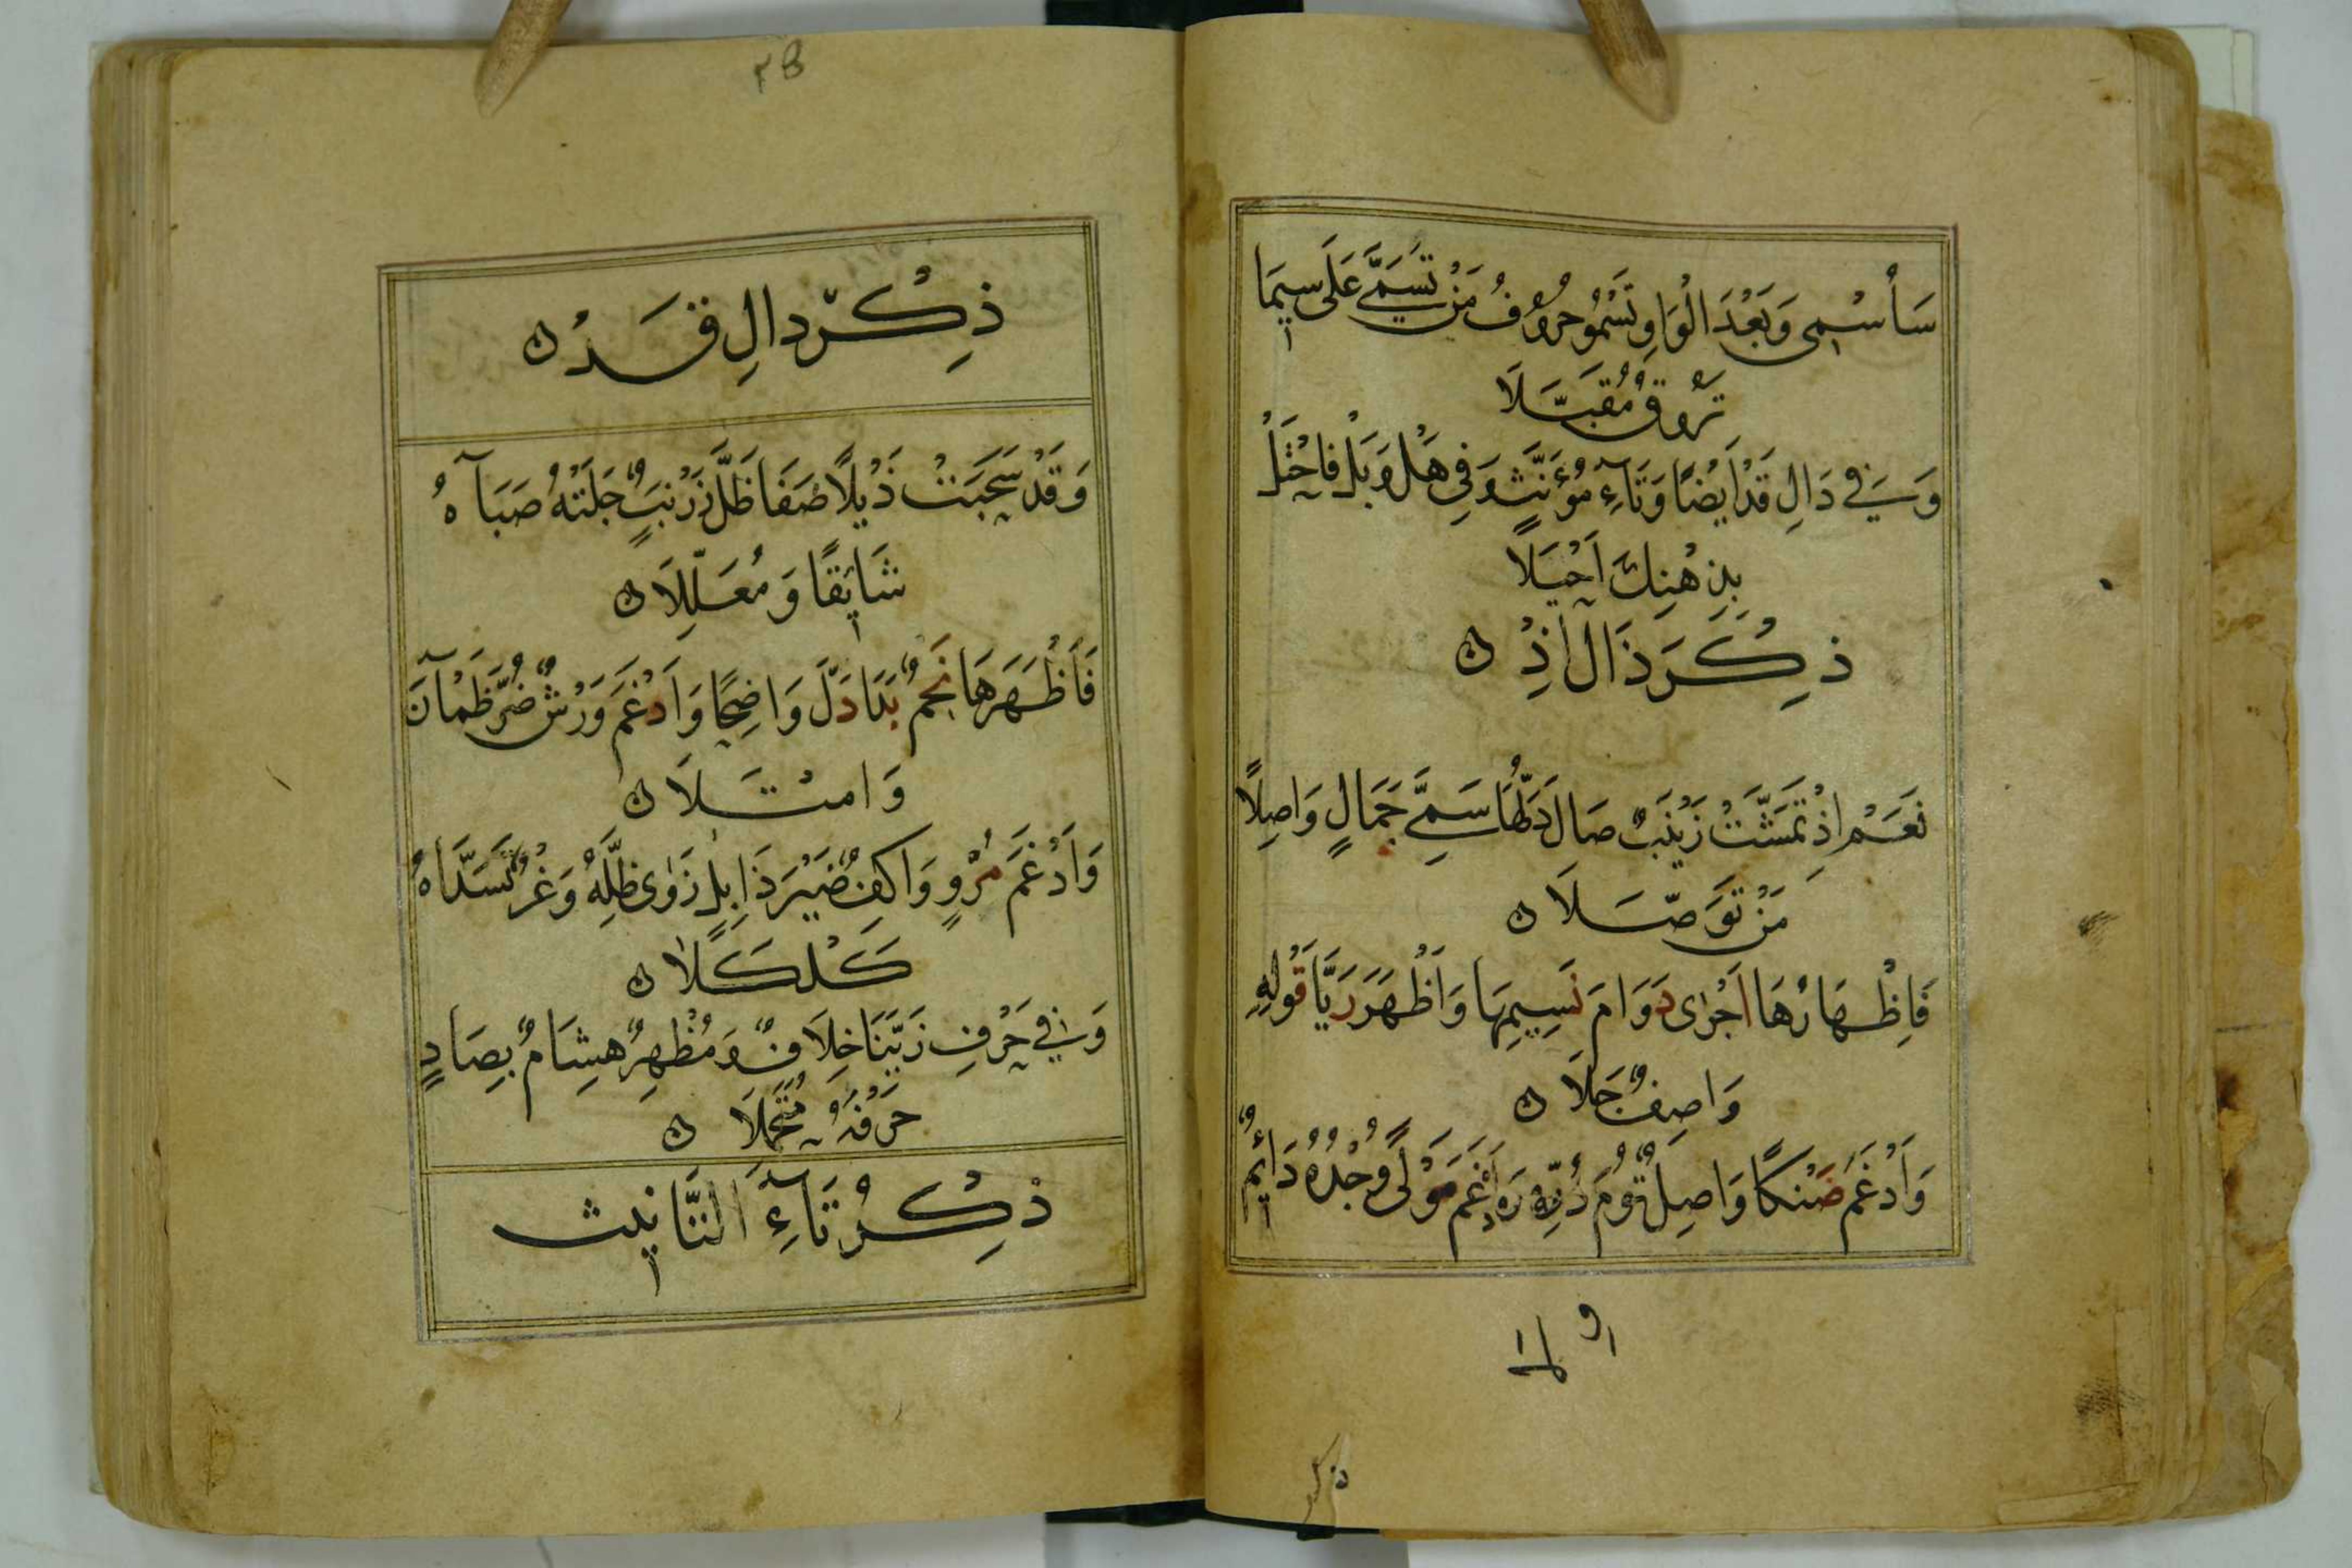 سَأُسْمِي وَبَعْدَ الْوَاوِ تَسْمُو حُرُوفُ مَنْ تَسَمَّى عَلَى سِيمَا
تَرُوقُ مُقَبَّلَا
وَفِي دَالِ قَدْ اَيْضًا وَتَاءِ مُؤَنَّثٍ وَفِي هَلْ وَبَلْ فَاحْتَلْ
بِذِهْنِكَ اَحْيَلَا
ذِكْرَ ذَالِ اِذْ ن
نَعَمْ اِذْ تَمَشَّتْ زَيْنَبٌ صَالَ دَلُّهَا سَمِيَّ جَمَالٍ وَاصِلًا
مَنْ تَوَصَّلَا ن
فَاِظْهَارُهَا اَجْرٰى دَوَامَ نَسِيمِهَا وَاَظْهَرَ رَيَّا قَوْلِهِ
وَاصِفٌ جَلَا ن
وَاَدْغَمَ ضَنْكًا وَاصِلٌ تُومَ دُرِّهِ وَاَدْغَمَ مَوْلًى وُجْدُهُ دَائِمٌ
ولا
ذكر
ذِكْرُ دَالِ قَدْ ن
وَقَدْ سَحَبَتْ ذَيْلًا ضَفَا ظَلَّ زَرْنَبٌ جَلَتْهُ صَبَاهُ
شَائِقًا وَمُعَلِّلَا ن
فَاَظْهَرَهَا نَجْمٌ بَدَا دَلَّ وَاضِحًا وَاَدْغَمَ وَرْشٌ ضَرَّ ظَمْآنَ
وَامْتَلَا ن
وَاَدْغَمَ مُرْوٍ وَاكِفٌ ضَيْرَ ذَابِلٍ زَوٰى ظِلَّهُ وَغْرٌ تَسَدَّاهُ
كَلْكَلًا ن
وَفِي حَرْفِ زَيَّنَّا خِلَافٌ وَمُظْهِرٌ هِشَامٌ بِصَادٍ
حَرْفَهُ مُتَحَمِّلَا ن
ذِكْرُ تَاءِ التَّانِيث